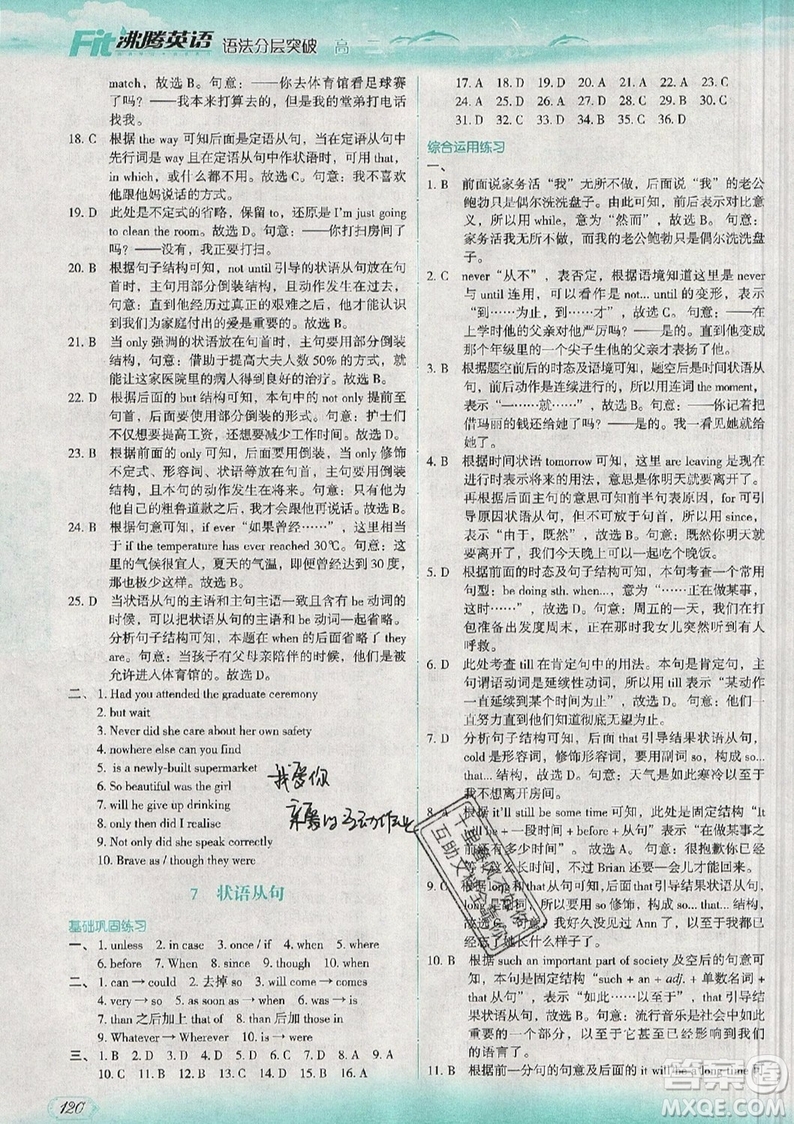 Fit沸腾英语 语法分层突破 高二
match，故选 B。句意：——你去体育馆看足球赛
了吗？——我本来打算去的，但是我的堂弟打电话
找我。
18. C 根据 the way 可知后面是定语从句，当在定语从句中
先行词是 way 且在定语从句中作状语时，可用 that，
in which，或什么都不用。故选 C。句意：我不喜欢
他跟他妈说话的方式。
19. D 此处是不定式的省略，保留 to，还原是 I'm just going
to clean the room。故选 D。句意：——你打扫房间了
吗？——没有，我正要打扫。
20. B 根据句子结构可知，not until 引导的状语从句放在句
首时，主句用部分倒装结构，且动作发生在过
去。句意：直到他经历过真正的艰难之后，他才能认识
到我们为家庭付出的爱是重要的。故选 B。
21. B 当 only 强调的状语放在句首时，主句要用部分倒装
结构，句意：借助于提高大夫人数 50% 的方式，就
能让这家医院里的病人得到良好的治疗。故选 B。
22. D 根据后面的 but 结构可知，本句中的 not only 提前至
句首，后面要使用部分倒装的形式。句意：护士们
不仅想要提高工资，还想要减少工作时间。故选 D。
23. B 根据前面的 only 可知，后面要用倒装，当 only 修饰
不定式、形容词、状语等放在句首时，主句要用倒装
结构，且本句的动作发生在将来。句意：只有他为
他自己的粗鲁道歉之后，我才会跟他说话。故选 B。
24. B 根据句意可知，if ever“如果曾经……”，这里相当
于 if the temperature has ever reached 30℃。句意：这
里的气候很宜人，夏天的气温，即便曾经到过 30 度，
那也极少这样。故选 B。
25. D 当状语从句的主语和主句主语一致且含有 be 动词的
时候，可以把状语从句的主语和 be 动词一起省略。
分析句子结构可知，本题在 when 的后面省略了 they
are。句意：当孩子有父母亲陪伴的时候，他们是被
允许进入体育馆的。故选 D。
二、1. Had you attended the graduate ceremony
2. but wait
3. Never did she care about her own safety
4. nowhere else can you find
5. is a newly-built supermarket
6. So beautiful was the girl
7. will he give up drinking
8. only then did I realise
9. Not only did she speak correctly
10. Brave as / though they were
7 状语从句
基础巩固练习
一、1. unless 2. in case 3. once / if 4. when 5. where
6. before 7. When 8. since 9. when 10. where
二、1. can → could 2. 去掉 so 3. will come → comes
4. very → so 5. as soon as → when 6. was → is
7. than 之后加上 that of 8. than 后加 those in
9. Whatever → Wherever 10. though → that
三、1. B 2. D 3. D 4. C 5. D 6. D 7. A 8. B 9. D
10. C 11. C 12. D 13. B 14. C 15. C 16. A
17. A 18. D 19. D 20. A 21. A 22. A 23. C
24. A 25. A 26. D 27. D 28. C 29. B 30. C
31. D 32. B 33. C 34. B 35. A 36. D
综合运用练习
一、
1. B 前面说家务活“我”无所不做，后面说“我”的老公
鲍勃只是偶尔洗洗盘子。由此可知，前后表示对比意
义，所以用 while，意为“然而”，故选 B。句意：
家务活我无所不做，而我的老公鲍勃只是偶尔洗洗盘
子。
2. C never“从不”，表否定，根据语境知道这里是 never
与 until 连用，可以看作是 not... until 的变形，表示
“到……为止，到……才”，故选 C。句意：——在
上学时他的父亲对他严厉吗？——是的。直到他成为
那个年级里的一个尖子生他的父亲才表扬了他。
3. B 根据题空前后的时态及语境可知，题空后是时间状语从
句，前后动作是连续进行的，所以用连词 the moment，
表示“一……就……”，故选 B。句意：——你记着把
借玛丽的钱还给她了吗？——是的。我一看见她就给
她了。
4. B 根据时间状语 tomorrow 可知，这里 are leaving 是现在
进行时表示将来的用法，意思是你们明天就要离开了。
再根据后面主句的意思可知前半句表原因，for 可引
导原因状语从句，但不可放于句首，所以用 since，
表示“由于，既然”，故选 B。句意：既然你明天就
要离开了，我们今天晚上可以一起吃个晚饭。
5. D 根据前面的时态及句子结构可知，本句考查一个常用
句型：be doing sth. when...，意为“……正在做某事，
这时……”，故选 D。句意：周五的一天，我们正在打
包准备出发度周末，正在那时我女儿突然听到有人
呼救。
6. D 此处考查 till 在肯定句中的用法。本句是肯定句，主
句谓语动词是延续性动词，所以用 till 表示“某动作
一直延续到某个时间为止”，故选 D。句意：他们一
直努力直到他们知道彻底无望为止。
7. D 分析句子结构可知，后面 that 引导结果状语从句，
cold 是形容词，修饰形容词，要用副词 so，构成 so...
that... 结构，所以选 D。句意：天气是如此寒冷以至于
我不想离开房间。
8. A 根据 it'll still be some time 可知，此处是固定结构“It
be + 一段时间 + before + 从句”，表示“在做某事之
前还有多少时间”。故选 A。句意：很抱歉你不得已
么长时间，不过 Brian 还要一会儿才能回来。
9. C 根据 long 和 that 可知，that 引导的是结果状语从句，
long 是形容词，所以要用 so 修饰，构成 so... that... 结
构，故选 C。句意：我好久没见过 Ann 了，以至于都已
经忘了她长什么样子了。
10. B 根据 such an important part of society 及空后的句意可
知，本空是固定结构“such + an + adj. + 单数名词 +
that 从句”，表示“如此……以至于”，that 引导结
果状语从句，故选 B。句意：流行音乐是社会中如此
重要的一个部分，以至于它已经丰富和影响了我们
的语言了。
11. B 根据前一分句的句意及后面的 it will be a long time 可
我爱你
亲爱的互动作业
120
答案圈
MXQE.COM